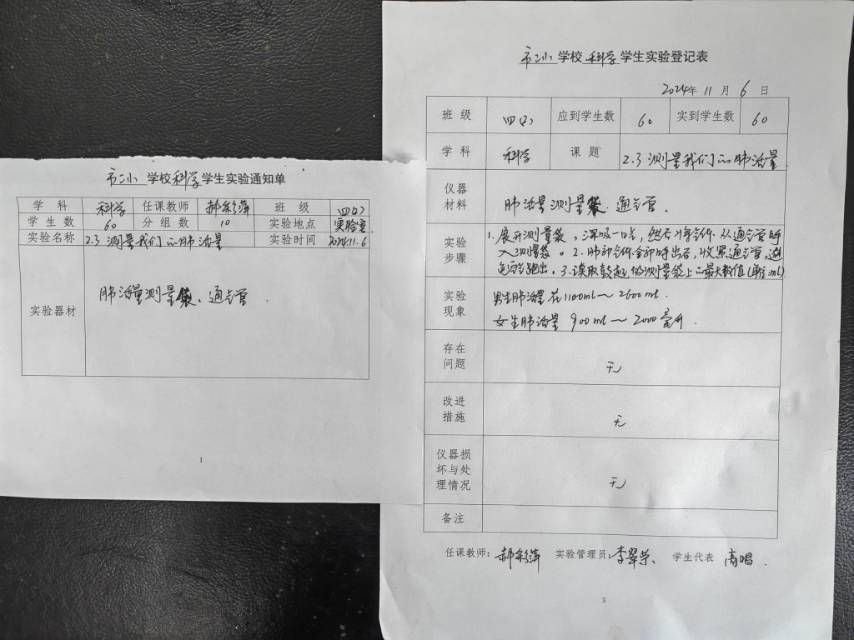 市二小 学校 科学 学生实验通知单
学 科 科学 任课教师 郝彩萍 班 级
学 生 数 60 分 组 数 10 实验地点 实验室
实验名称 2.3 测量我们的肺活量 实验时间 2024.11.6
实验器材 肺活量测量袋、通气管
1
市二小 学校 科学 学生实验登记表
2024年 11 月 6 日
班 级 应到学生数 60 实到学生数 60
学 科 科学 课 题 2.3 测量我们的肺活量
仪器
材料 肺活量测量袋、通气管.
实验
步骤
1.展开测量袋、深吸一口气,然后 从通气管
入测量袋。2.肺部气体全部呼出后,收紧通气管,避
免气体跑出。3.读取鼓起的测量袋上的最大数值(单位ml)
实验
现象
男生肺活量在1100ml~2600ml.
女生肺活量 900ml~2000毫升
存在
问题 无
改进
措施 无
仪器损
坏与处
理情况 无
备注
任课教师: 郝彩萍 实验管理员: 李翠荣、 学生代表